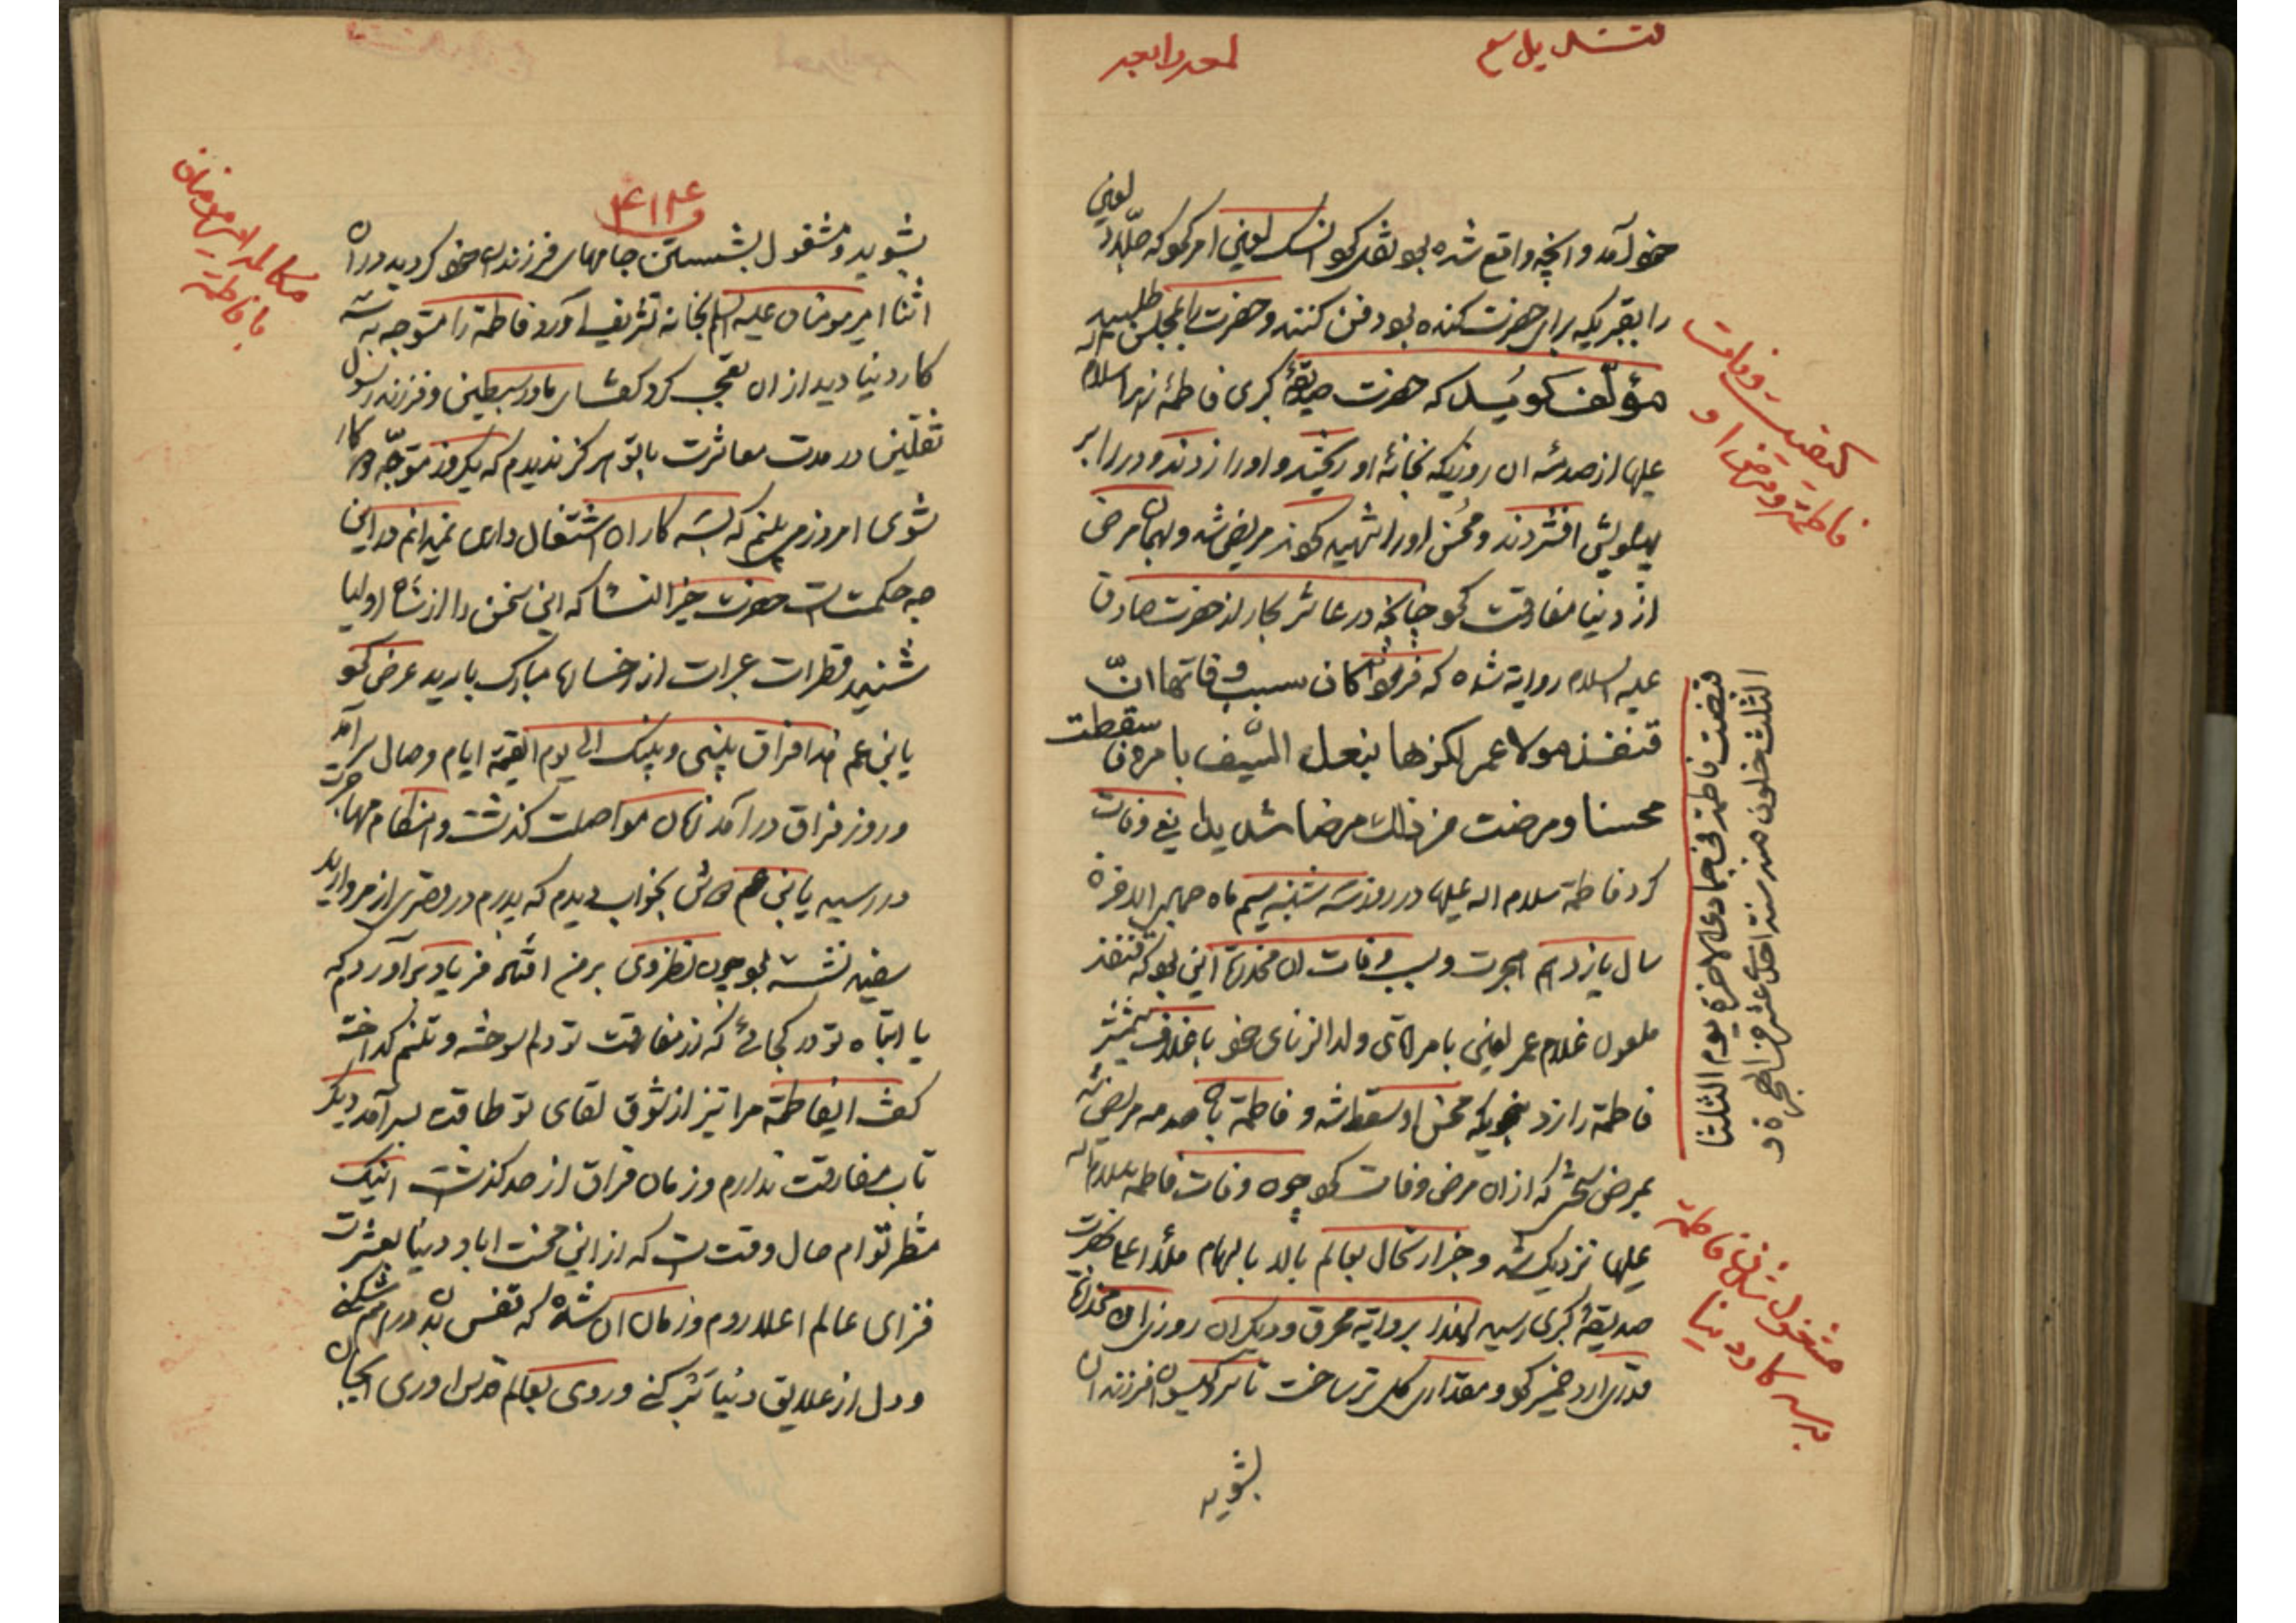 خود آمد و آنچه واقع شده بود نقل کرد
را بقبریکه برای حضرت کنده بود دفن کنند و حضرت را بمجلس طلبید
مؤلف گوید که حضرت صدیقهٔ کبری فاطمهٔ زهرا سلام
علیها از صدمهٔ آن روزیکه بخانهٔ او ریختند و او را زدند و در را بر
پهلویش افشردند و محسن او را شهید کردند مریض شد و بهمان مرض
از دنیا مفارقت کرد چنانچه در عاشر بحار از حضرت صادق
علیه السلام روایة شده که فرمود کان سبب وفاتها انّ
قنفذ مولا عمر لکزها بنعل السیف بامره فاسقطت
محسنا و مرضت من ذلک مرضا شدیدا یعنی وفات
کرد فاطمه سلام اله علیها در روز سه شنبه سیم ماه جمادی الاخرة
سال یازدهم هجرت و سبب وفات آن مخدرة این بود که قنفذ
ملعون غلام عمر لعین بامر آقای ولد الزنای خود با غلاف شمشیر
فاطمة را زد بنحویکه محسن او سقط شد و فاطمة بآن صدمه مریض شد
که از آن مرض وفات کرد چون وفات فاطمه سلام اله
علیها نزدیک شد و خبر ارتحال بعالم بالا بالهام ملأ اعلا بحضرت
صدیقهٔ کبری رسید لهذا بروایة محرق و دیگران روزی آن مخدرة
قدری آرد خمیر کرد و مقداری گل تر ساخت تا سر و گیسوان فرزندان
بشوید
کیفیت وفات
فاطمة و مرض او
قبضت فاطمة فی جمادی الاخرة یوم الثلثا
لثلث خلون منه سنة احدی عشر من الهجرة
مشغول شدن فاطمة
بسه کار دنیا
بشوید و مشغول بشستن جامهای فرزندان خود گردید در آن
اثنا امیر مومنان علیه السلم بخانه تشریف آورد فاطمة را متوجه به سه
کار دنیا دید از آن تعجب کرد گفت ای مادر سبطین و فرزند رسول
ثقلین در مدت معاشرت با تو هرگز ندیدم که یکروز متوجّه دو کار
شوی امروز می بینم که بسه کار اشتغال داری نمیدانم در این
چه حکمت است حضرت خیر النسا که این سخن را از شاه اولیا
شنید قطرات عبرات از رخسارها مبارک بارید عرض کرد
یابن عم هذا فراق بینی و بینک الی یوم القیمة ایام وصال سر آمد
و روز فراق در آمد زمان مواصلت گذشت و هنگام مهاجرت
در رسید یابن عم دوش بخواب دیدم که پدرم در قصری از مروارید
سفید نشسته بود چون نظر وی بر من افتاد فریاد بر آوردم که
یا ابتاه تو در کجائی که از مفارقت تو دلم سوخته و تنم گداخته
گفت ایفاطمة مرا نیز از شوق لقای تو طاقت بسر آمد دیگر
تاب مفارقت ندارم و زمان فراق از حد گذشت اینک
منتظر توام حال وقت است که از این محنت آباد دنیا بعشرت
فزای عالم اعلا روم و زمان آن شد که قفس تن در هم شکنی
و دل از علایق دنیا بر کنی و روی بعالم قدس آوری
مکالمه امیر مومنان
با فاطمة